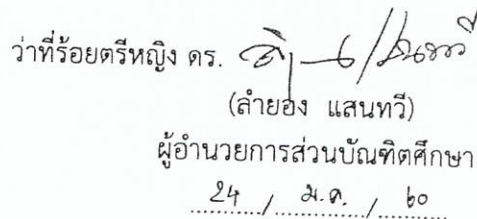 ว่าที่ร้อยตรีหญิง ดร.
(ลำยอง แสนทวี)
ผู้อำนวยการส่วนบัณฑิตศึกษา
24 / ม.ค. / ๖๐